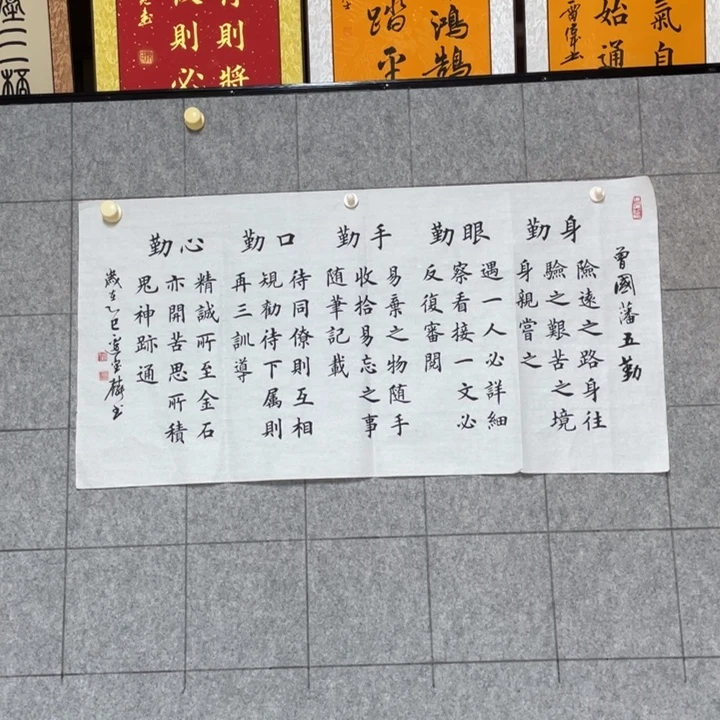 氣自
始通
鴻鵠
踏平
則將
則必
曾國藩五勤
身勤
險遠之路身往
驗之艱苦之境
身親嘗之
眼勤
遇一人必詳細
察看接一文必
反復審閱
手勤
易棄之物隨手
收拾易忘之事
隨筆記載
口勤
待同僚則互相
規勸待下属則
再三訓導
心勤
精誠所至金石
亦開苦思所積
鬼神跡通
歲在乙巳